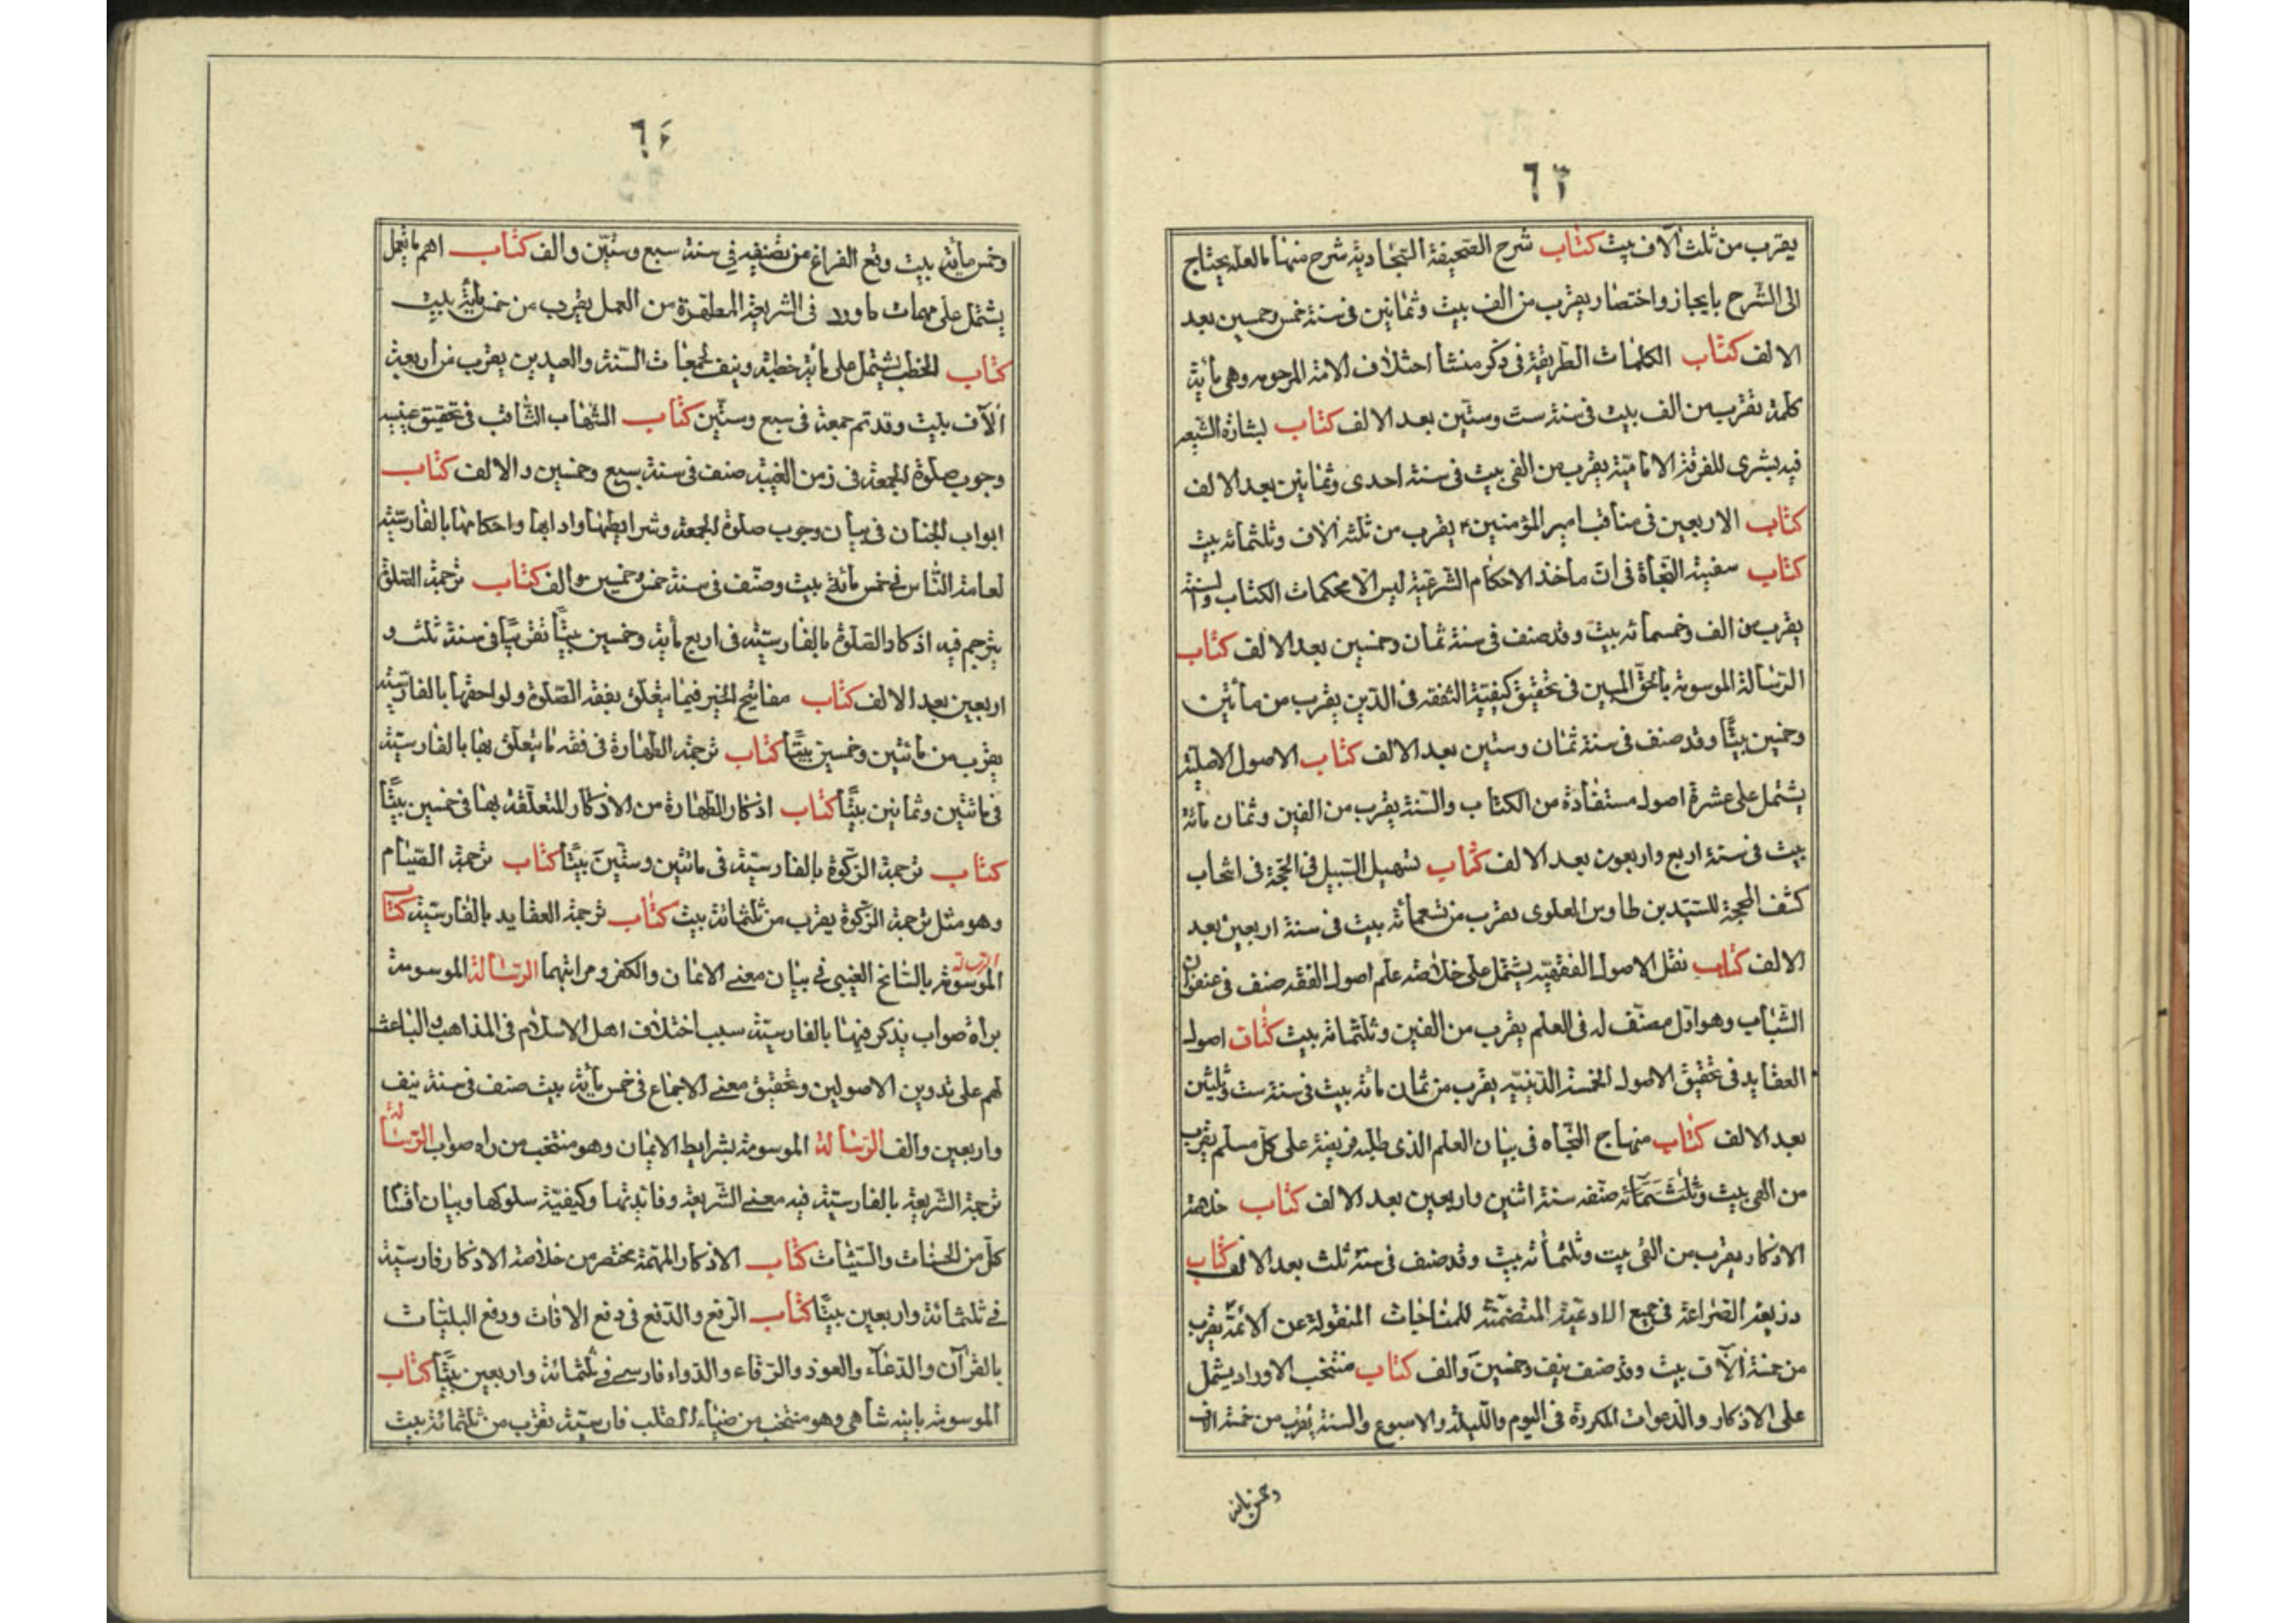 ٦٣
يقرب من ثلث آلاف بيت كتاب شرح الصحيفة السجادية شرح منها ما لعله يحتاج
الى الشرح بايجاز واختصار يقرب من الف بيت وثمانين فى سنة خمس وخمسين بعد
الالف كتاب الكلمات الطريفة فى ذكر منشأ اختلاف الامة المرحومه وهى مأية
كلمة تقرب من الف بيت فى سنة ست وستين بعد الالف كتاب بشارة الشيعه
فيه بشرى للفرقة الامامية يقرب من الفى بيت فى سنة احدى وثمانين بعد الالف
كتاب الاربعين فى مناقب امير المؤمنين ۴ يقرب من ثلثه آلاف وثلثمائه بيت
كتاب سفينة النجاة فى ان مأخذ الاحكام الشرعية ليس الا محكمات الكتاب والسنة
يقرب من الف وخمسمائه بيت وقد صنف فى سنة ثمان وخمسين بعد الالف كتاب
الرسالة الموسومة بالحق المبين فى تحقيق كيفية التفقه فى الدين يقرب من مأتين
وخمسين بيتا وقد صنف فى سنة ثمان وستين بعد الالف كتاب الاصول الاصلية
يشتمل على عشرة اصول مستفادة من الكتاب والسنة يقرب من الفين وثمان مائة
بيت فى سنة اربع واربعون بعد الالف كتاب تسهيل السبيل فى الحجة فى انتخاب
كشف المحجة للسيد بن طاوس العلوى يقرب من تسعمائه بيت فى سنة اربعين بعد
الالف كتاب نقل الاصول الفقهيه يشتمل على خلاصه علم اصول الفقه صنف فى عنفوان
الشباب وهو اول مصنف له فى العلم يقرب من الفين وثلثمائه بيت كتاب اصول
العقايد فى تحقيق الاصول الخمسة الدينيه يقرب من ثمان مائه بيت فى سنة ست وثلثين
بعد الالف كتاب منهاج النجاه فى بيان العلم الذى طلبه فريضة على كل مسلم يقرب
من الفى بيت وثلثمائه صنفه سنة اثنين واربعين بعد الالف كتاب خلاصة
الاذكار يقرب من الفى بيت وثلثمأئه بيت وقد صنف فى سنة ثلث بعد الالف كتاب
ذريعة الضراعة فى جميع الادعية المتضمنة للمناجات المنقولة عن الائمة يقرب
من خمسة آلاف بيت وقد صنف نيف وخمسين والف كتاب منتخب الاوراد يشتمل
على الاذكار والدعوات المكررة فى اليوم والليلة والاسبوع والسنة يقرب من خمسة الاف
وخمس مائه
٦٤
وخمس مأية بيت وقع الفراغ من تصنيفه فى سنة سبع وستين والف كتاب اهم ما يعمل
يشتمل على مهمات ما ورد فى الشريعة المطهرة من العمل يقرب من خمس مأية بيت
كتاب الخطب يشتمل على مأية خطبة ونيف لجمعات السنة والعيدين يقرب من اربعة
آلآف بيت وقد تم جمعه فى سبع وستين كتاب الشهاب الثاقب فى تحقيق عينيه
وجوب صلوة الجمعة فى زمن الغيبة صنف فى سنة سبع وخمسين و الالف كتاب
ابواب الجنان فى بيان وجوب صلوة الجمعة وشرايطها وادابها واحكامها بالفارسية
لعامة الناس فى خمس مائة بيت وصنف فى سنة خمس وخمسين والف كتاب ترجمة الصلوة
يترجم فيه اذكار الصلوة بالفارسية فى اربع مأية وخمسين بيتا تقريبا فى سنة ثلث و
اربعين بعد الالف كتاب مفاتيح الخير فيما يتعلق بفقه الصلوة ولواحقها بالفارسية
يقرب من مأتين وخمسين بيتا كتاب ترجمة الطهارة فى فقه ما يتعلق بها بالفارسية
فى مائتين وثمانين بيتا كتاب اذكار الطهارة من الاذكار المتعلقة بها فى خمسين بيتا
كتاب ترجمة الزكوة بالفارسية فى مائتين وستين بيتا كتاب ترجمة الصيام
وهو مثل ترجمة الزكوة يقرب من ثلثمائة بيت كتاب ترجمة العقايد بالفارسية كتاب
الرسالة الموسومة بالسانح الغيبى فى بيان معنى الايمان والكفر ومراتبهما الرسالة الموسومة
براه صواب يذكر فيها بالفارسية سبب اختلاف اهل الاسلام فى المذاهب والباعث
لهم على تدوين الاصولين وتحقيق معنى الاجماع فى خمس مأية بيت صنف فى سنة نيف
واربعين والف الرسالة الموسومة بشرايط الايمان وهو منتخب من راه صواب الرسالة
ترجمة الشريعة بالفارسية فيه معنى الشريعة وفائدتها وكيفية سلوكها وبيان اقسام
كل من الحسنات والسيئات كتاب الاذكار المهمة مختصر من خلاصة الاذكار فارسية
فى ثلثمائة واربعين بيتا كتاب الرفع والدفع فى دفع الافات ورفع البليات
بالقرآن والدعآء والعوذ والرقاء والدواء فارسى فى ثلثمائة واربعين بيتا كتاب
الموسومة باينه شاهى وهو منتخب من ضياء القلب فارسية تقرب من ثلثمائة بيت